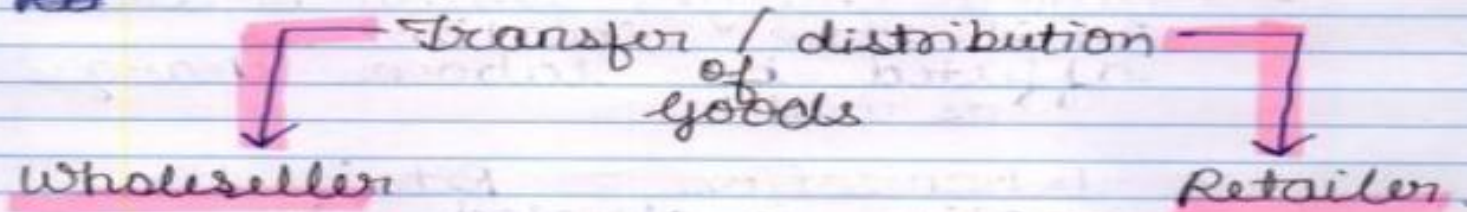 Transfer / distribution
of
goods
Wholeseller Retailer